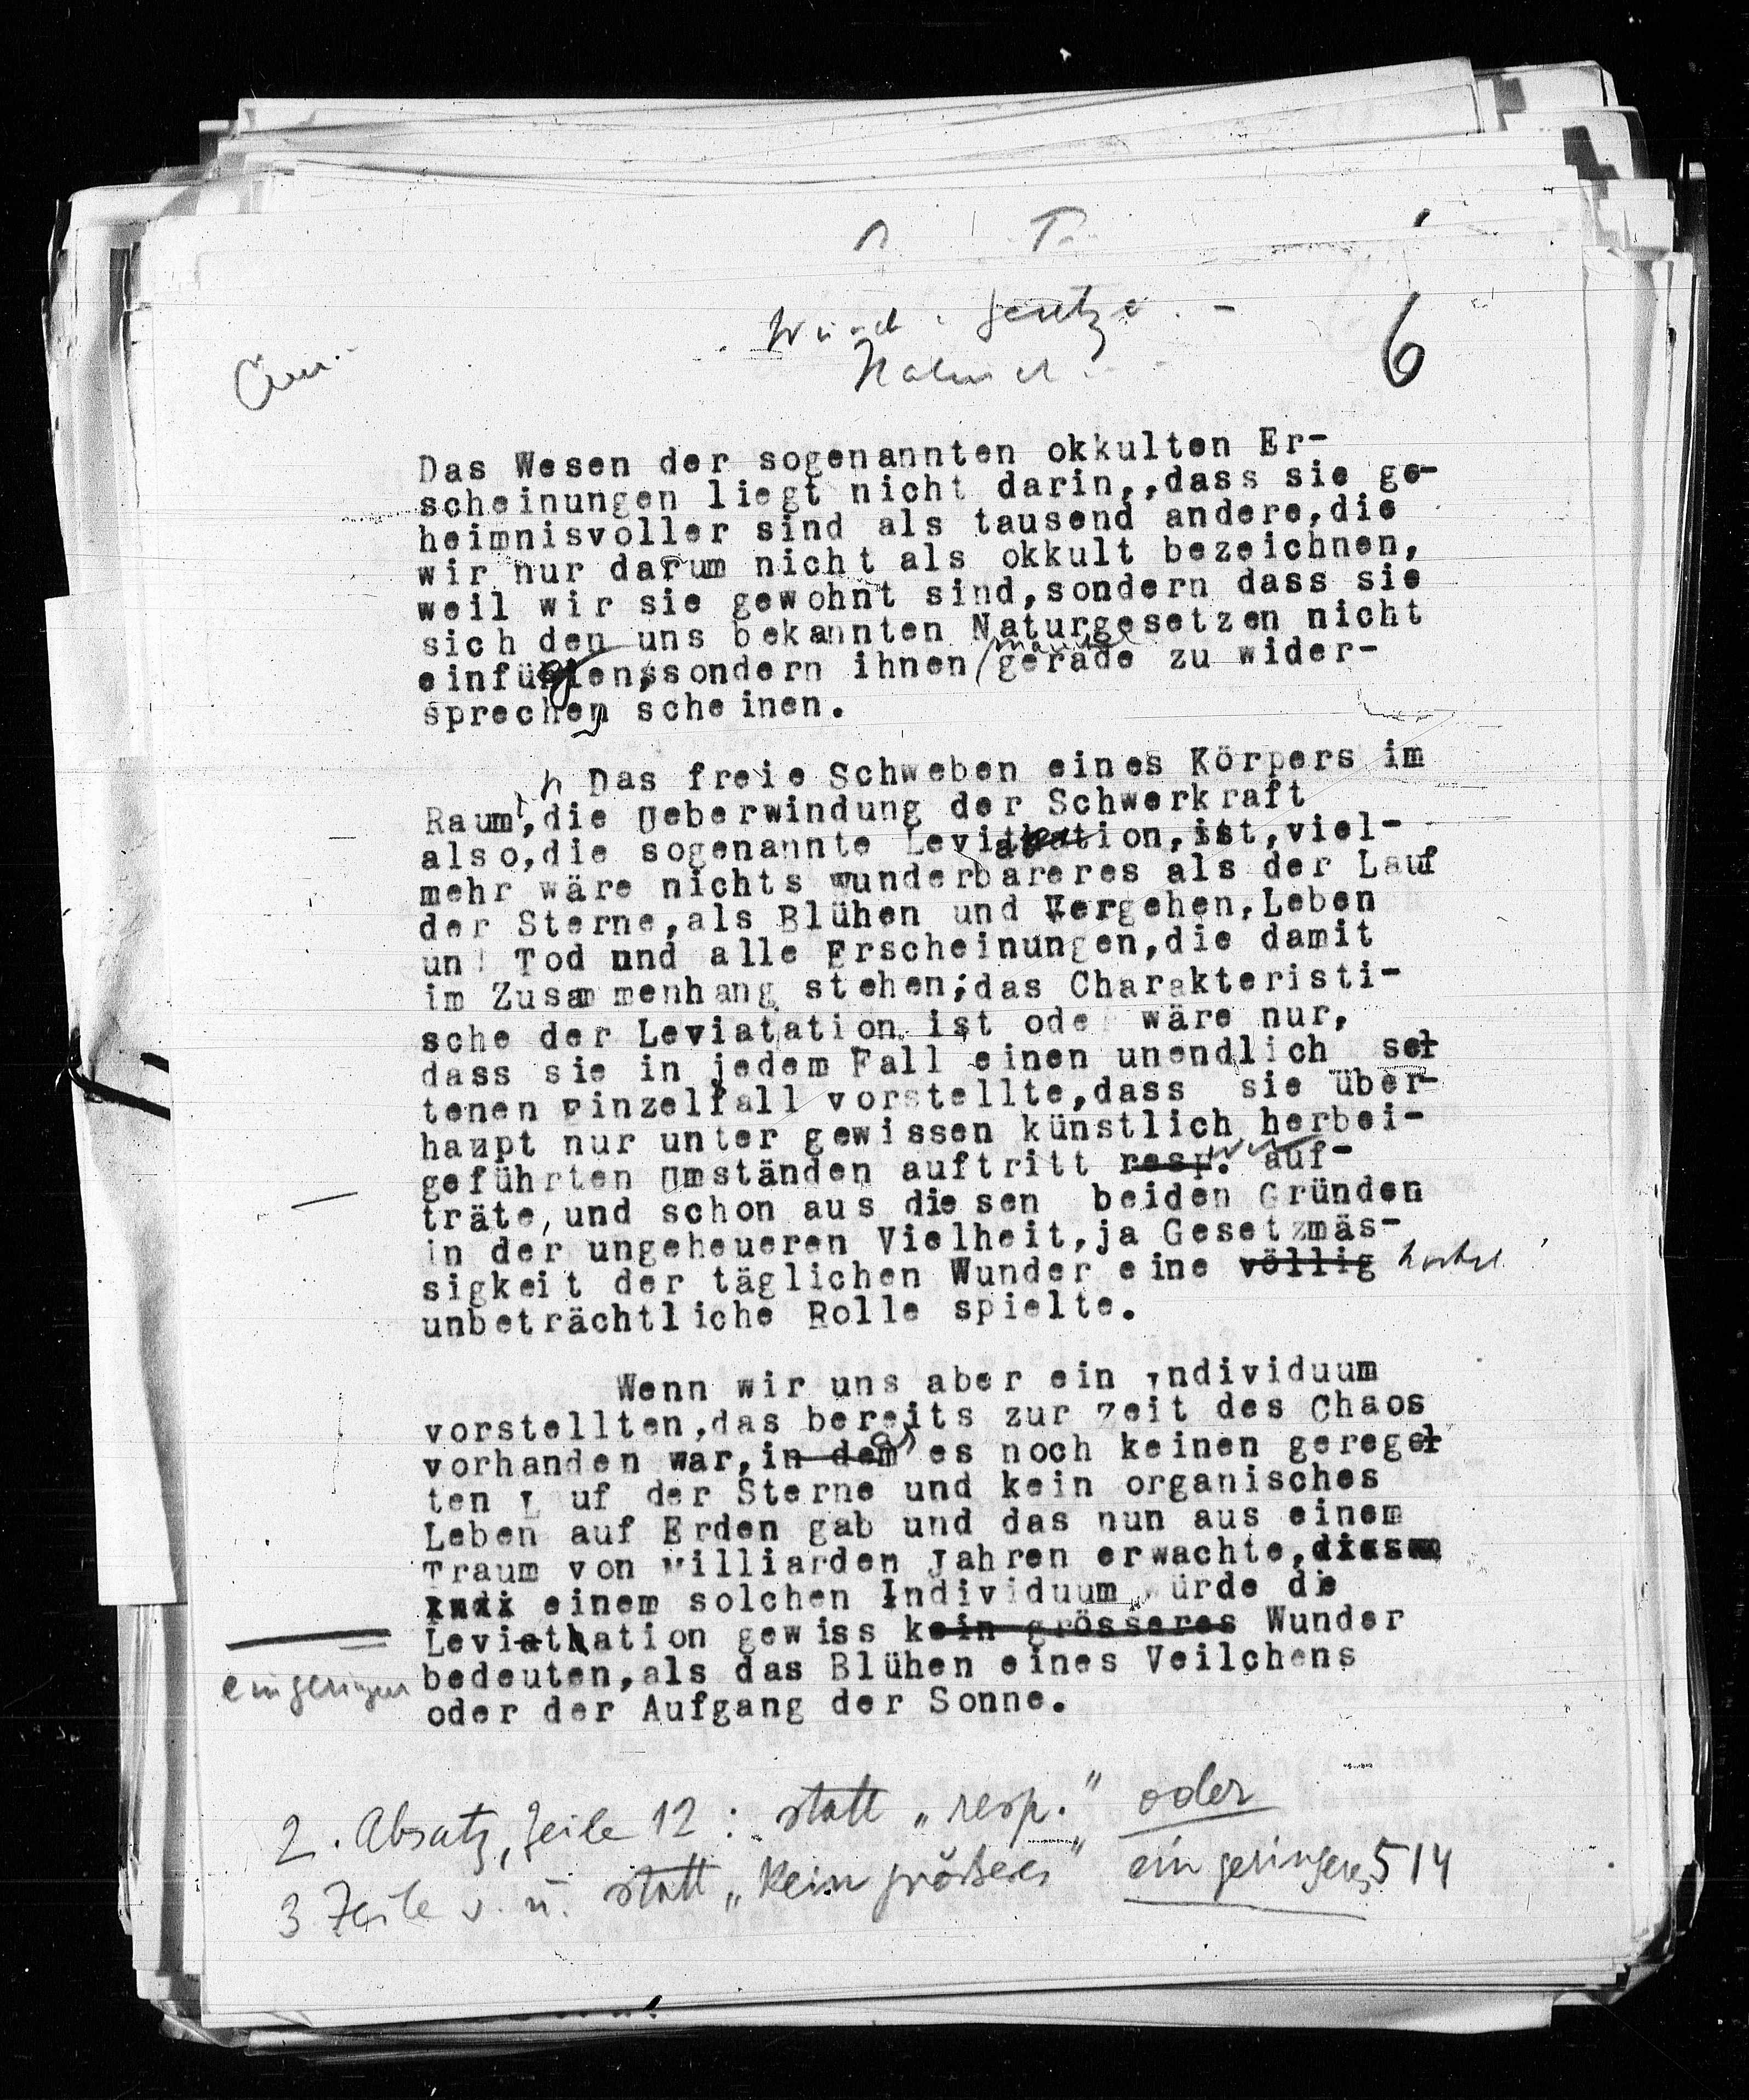 6
Das Wesen der sogenannten okkulten Er-
scheinungen liegt nicht darin,,dass sie ge-
heimnisvoller sind als tausend andere,die
wir nur darum nicht als okkult bezeichnen,
weil wir sie gewohnt sind,sondern dass sie
sich den uns bekannten Naturgesetzen nicht
einfügen,sondern ihnen gerade zu wider-
sprechen scheinen.
Das freie Schweben eines Körpers im
Raum,die Ueberwindung der Schwerkraft
also,die sogenannte Levitation,ist,viel-
mehr wäre nichts wunderbareres als der Lauf
der Sterne,als Blühen und Vergehen,Leben
und Tod und alle Erscheinungen,die damit
im Zusammenhang stehen;das Charakteristi-
sche der Leviatation ist oder wäre nur,
dass sie in jedem Fall einen unendlich sel
tenen Einzelfall vorstellte,dass sie über-
haupt nur unter gewissen künstlich herbei-
geführten Umständen auftritt resp. auf-
träte,und schon aus diesen beiden Gründen
in der ungeheueren Vielheit,ja Gesetzmäs-
sigkeit der täglichen Wunder eine völlig
unbeträchtliche Rolle spielte.
Wenn wir uns aber ein Individuum
vorstellten,das bereits zur Zeit des Chaos
vorhanden war,in dem es noch keinen geregel
ten Lauf der Sterne und kein organisches
Leben auf Erden gab und das nun aus einem
Traum von Milliarden Jahren erwachte,diesem
Indi einem solchen Individuum würde die
Leviathation gewiss kein grösseres Wunder
eingeringeres bedeuten,als das Blühen eines Veilchens
oder der Aufgang der Sonne.
2. Absatz, Zeile 12: statt „resp." oder
3 Zeile v. u. statt „kein größeres" ein geringeres 514